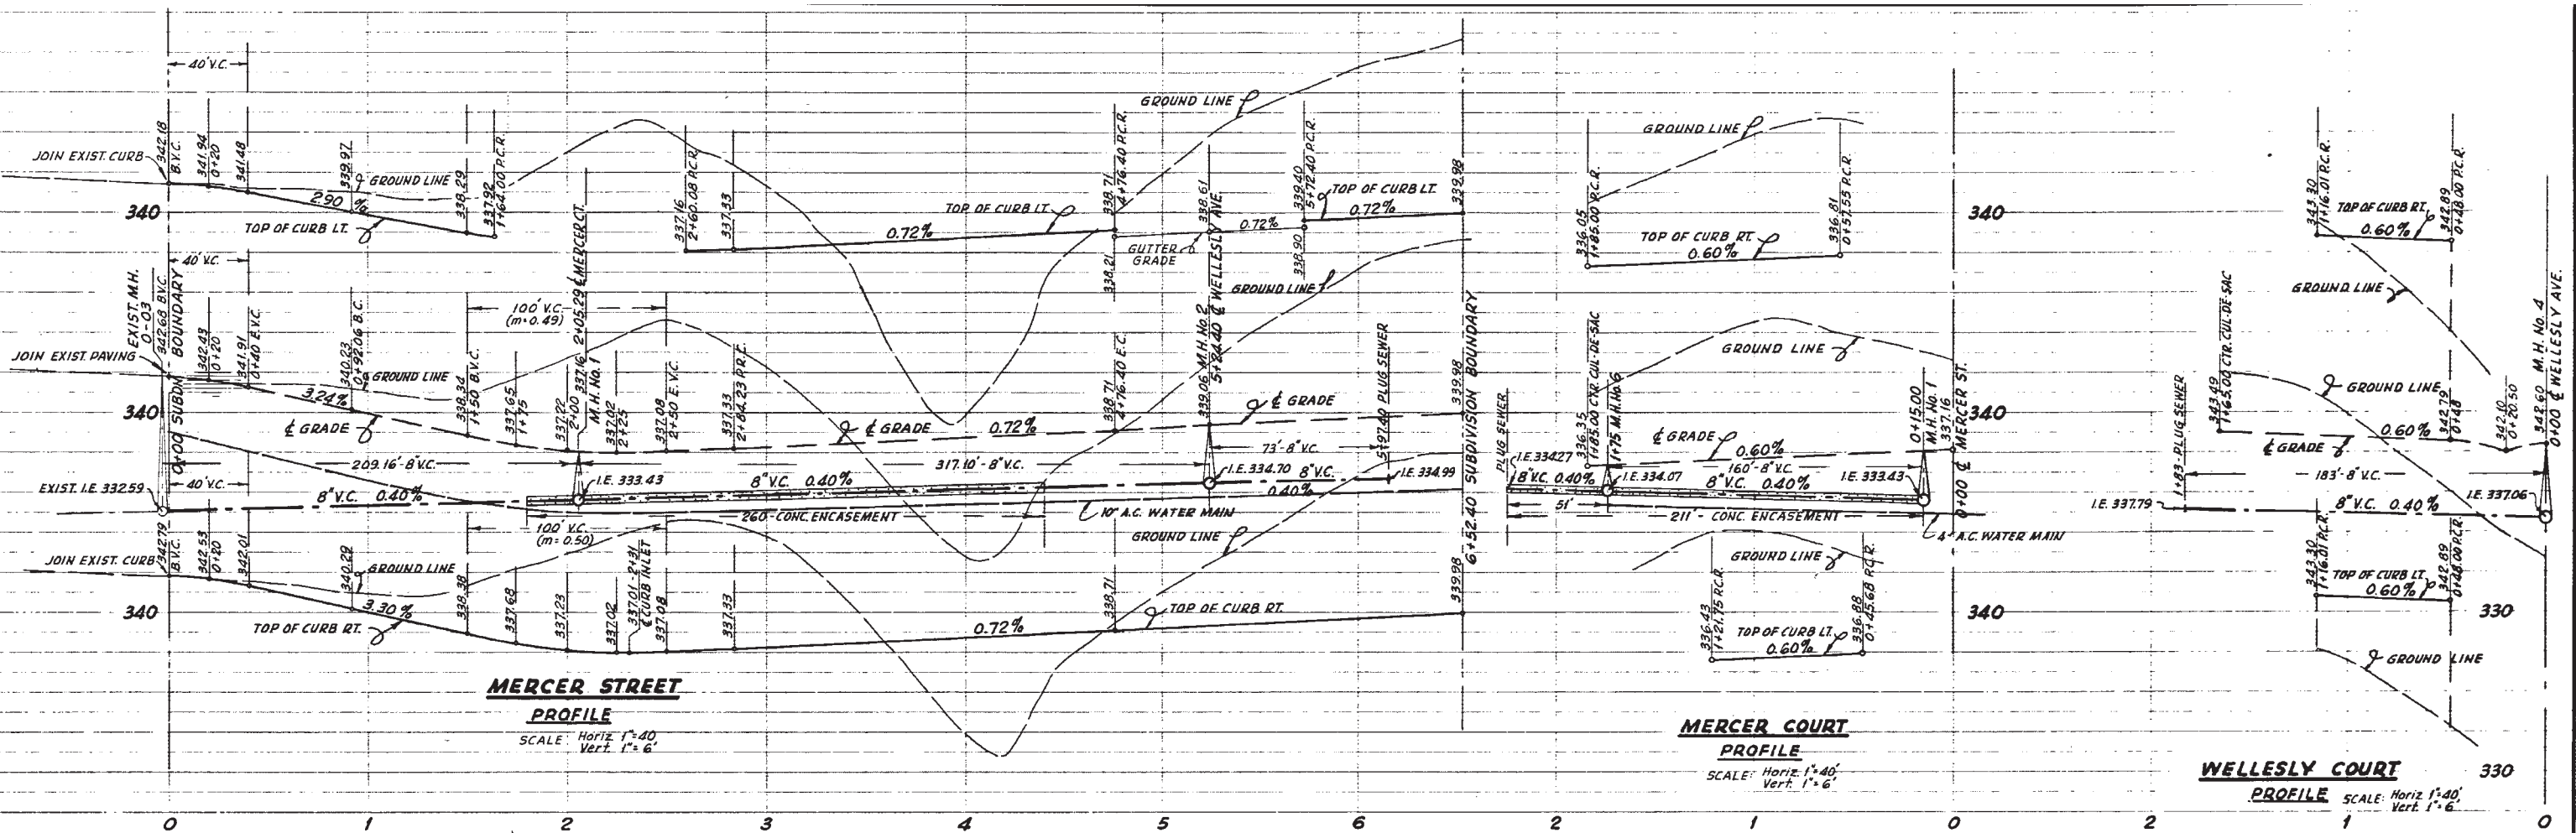 40' V.C.
JOIN EXIST. CURB
342.18
B.V.C.
341.94
0+20
341.48
339.97
GROUND LINE
338.29
337.92
1+64.00 P.C.R.
2.90 %
340
TOP OF CURB LT.
337.16
2+60.08 P.C.R.
337.33
0.72%
TOP OF CURB LT.
GROUND LINE
338.71
4+76.40 P.C.R.
338.21
GUTTER
GRADE
338.61
0.72%
338.90
339.40
5+72.40 P.C.R.
TOP OF CURB LT.
0.72%
339.98
EXIST. M.H.
0-03
342.68 B.V.C.
0+00 SUBD'N
BOUNDARY
JOIN EXIST. PAVING
40' V.C.
342.43
0+20
341.91
0+40 E.V.C.
340.23
0+92.06 B.C.
GROUND LINE
3.24%
340
℄ GRADE
338.34
1+50 B.V.C.
337.65
1+75
100' V.C.
(m=0.49)
337.22
2+00
337.16 2+05.29 ℄ MERCER CT.
M.H. No. 1
337.02
2+25
337.08
2+50 E.V.C.
337.33
2+84.23 P.R.C.
℄ GRADE
0.72%
338.71
4+76.40 E.C.
339.06 M.H. No. 2
5+24.40 ℄ WELLESLY AVE.
GROUND LINE
℄ GRADE
73'-8" V.C.
5+97.40 PLUG SEWER
339.98
6+52.40 SUBDIVISION BOUNDARY
209.16'-8" V.C.
317.10'-8" V.C.
EXIST. I.E. 332.59
40' V.C.
8" V.C. 0.40%
I.E. 333.43
8" V.C. 0.40%
I.E. 334.70
8" V.C.
0.40%
I.E. 334.99
260' CONC. ENCASEMENT
10" A.C. WATER MAIN
100' V.C.
(m=0.50)
JOIN EXIST. CURB
342.79
B.V.C.
342.53
0+20
342.01
340.29
GROUND LINE
3.30 %
340
TOP OF CURB RT.
338.38
337.68
337.23
337.02
337.01 - 2+31
℄ CURB INLET
337.08
337.33
0.72%
GROUND LINE
338.71
TOP OF CURB RT.
339.98
MERCER STREET
PROFILE
SCALE: Horiz. 1"=40'
Vert. 1"=6'
GROUND LINE
336.05
1+85.00 P.C.R.
TOP OF CURB RT.
0.60%
336.81
0+57.55 P.C.R.
340
GROUND LINE
PLUG SEWER
336.35
1+85.00 CTR. CUL-DE-SAC
1+75 M.H. No. 6
℄ GRADE
0.60%
0+15.00
M.H. No. 1
337.16
0+00 ℄ MERCER ST.
340
I.E. 334.27
8" V.C. 0.40%
51'
I.E. 334.07
160'-8" V.C.
8" V.C. 0.40%
I.E. 333.43
211' - CONC. ENCASEMENT
4" A.C. WATER MAIN
GROUND LINE
336.43
1+21.75 P.C.R.
TOP OF CURB LT.
0.60%
336.88
0+45.68 P.C.R.
340
MERCER COURT
PROFILE
SCALE: Horiz. 1"=40'
Vert. 1"=6'
343.30
1+16.01 P.C.R.
TOP OF CURB RT.
0.60%
342.89
0+48.00 P.C.R.
GROUND LINE
343.49
1+65.00 CTR. CUL-DE-SAC
GROUND LINE
℄ GRADE
0.60%
342.79
0+48
342.10
0+20.50
342.60 M.H. No. 4
0+00 ℄ WELLESLY AVE.
1+83 - PLUG SEWER
183'-8" V.C.
I.E. 337.79
8" V.C. 0.40%
I.E. 337.06
343.30
1+16.01 P.C.R.
TOP OF CURB LT.
0.60%
342.89
0+48.00 P.C.R.
330
GROUND LINE
330
WELLESLY COURT
PROFILE
SCALE: Horiz. 1"=40'
Vert. 1"=6'
0 1 2 3 4 5 6 2 1 0 2 1 0